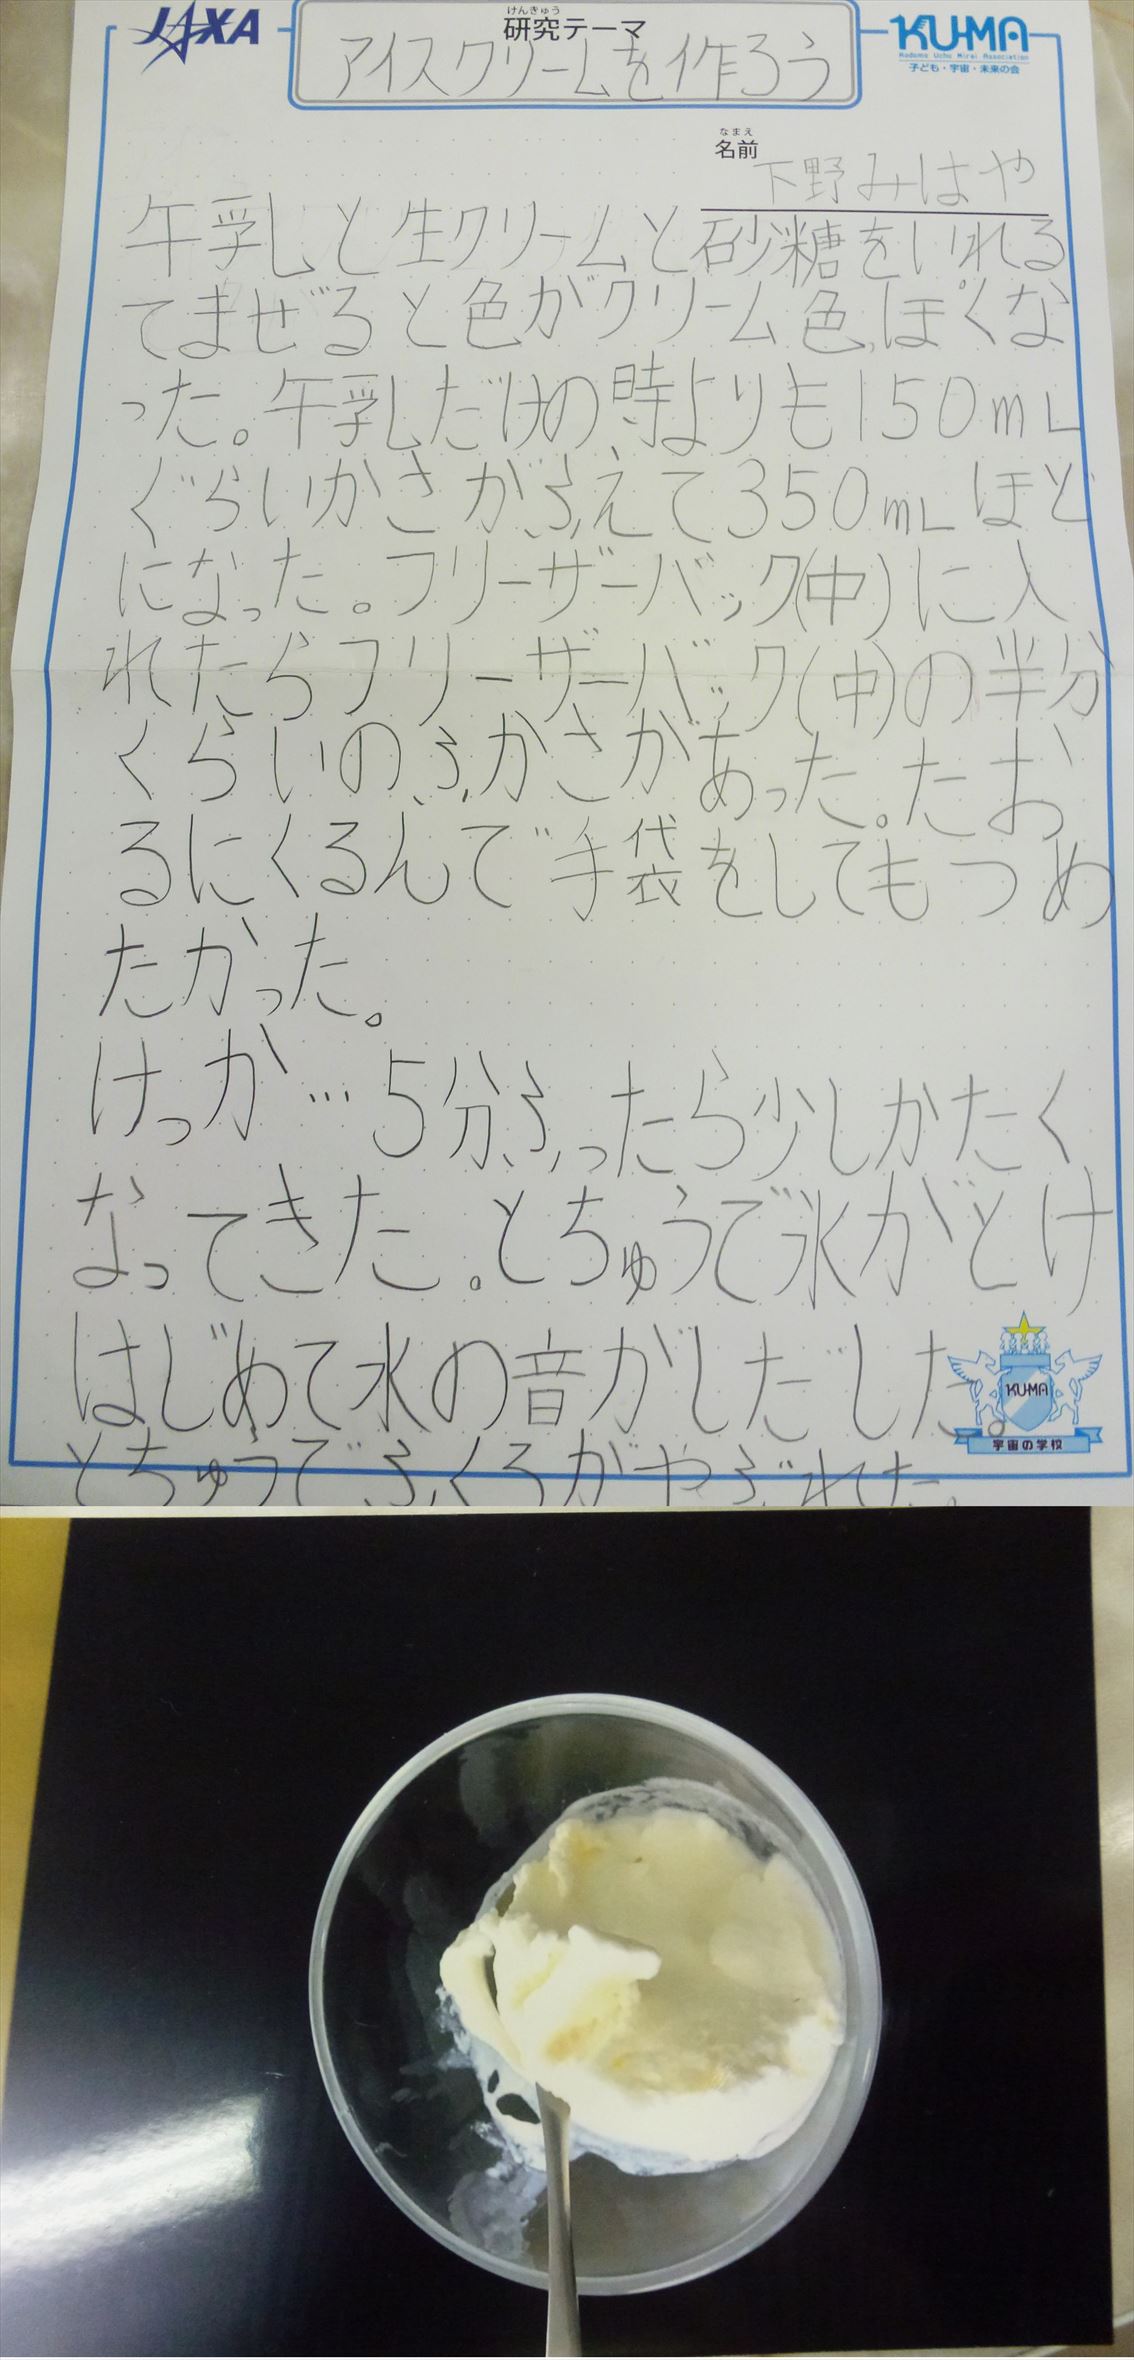 JAXA
けんきゅう
研究テーマ
KU-MA
Kodomo Uchu Mirai Association
子ども・宇宙・未来の会
アイスクリームを作ろう
なまえ
名前
下野みはや
午乳と生クリームと砂糖をいれる
てまぜると色がクリーム色ぽくな
った。午乳だけの時よりも150mL
ぐらいかさがふえて350mLほど
になった。フリーザーバック(中)に入
れたらフリーザーバック(中)の半分
くらいのふかさがあった。たお
るにくるんで手袋をしてもつめ
たかった。
けっか…5分ふったら少しかたく
なってきた。とちゅうで氷がとけ
はじめて水の音がしだした。
KUMA
宇宙の学校
とちゅうでふくろがやぶれた。